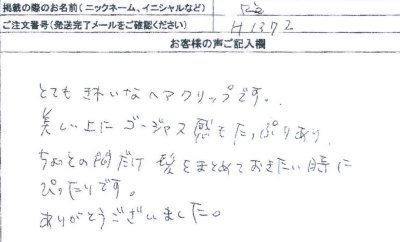 掲載の際のお名前(ニックネーム、イニシャルなど)
ご注文番号(発送完了メールをご確認ください) H1372
お客様の声ご記入欄
とても きれいなヘアクリップです。
美しい上に ゴージャス感もたっぷりあり
ちょっとの間だけ 髪をまとめておきたい時に
ぴったりです。
ありがとうございました。